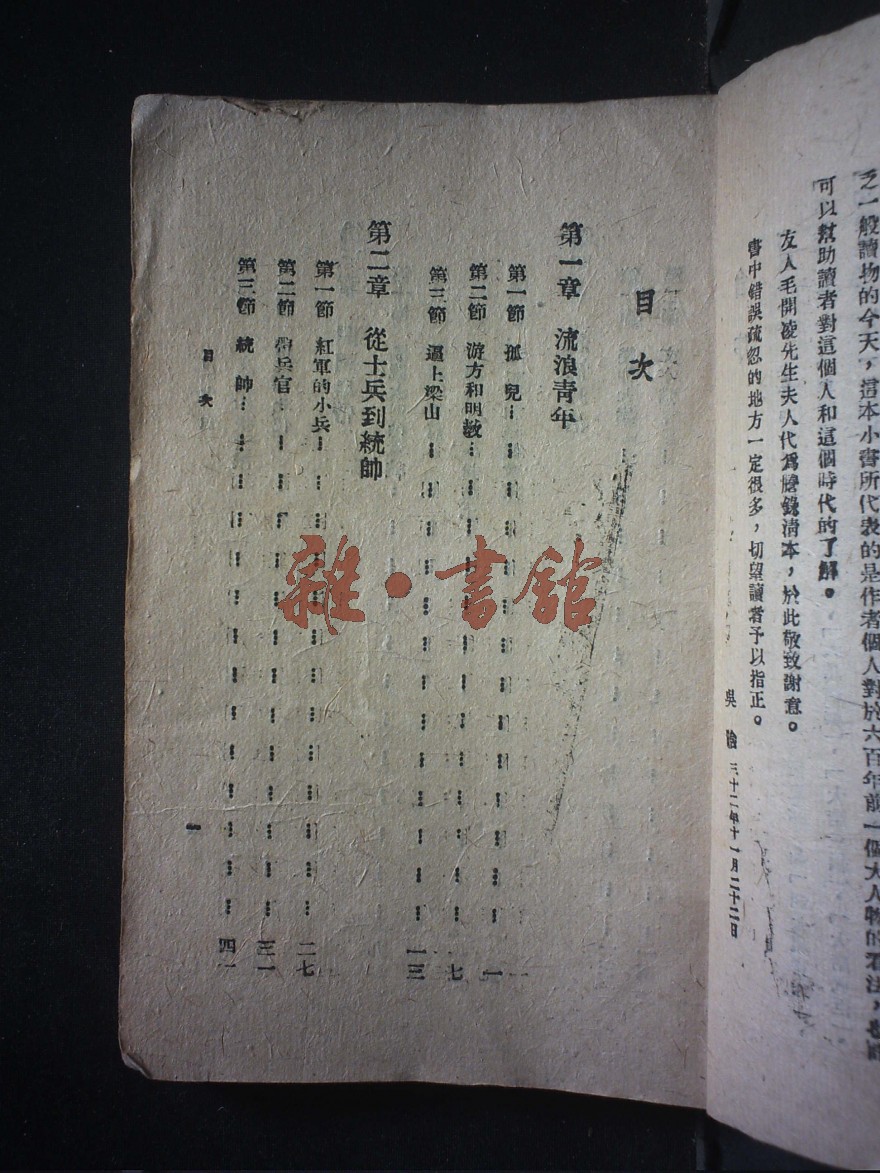 乏一般讀物的今天，這本小書所代表的是作者個人對於六百年前一個大人物的看法，也
可以幫助讀者對這個人和這個時代的了解。
友人毛開凌先生夫人代爲謄錄清本，於此敬致謝意。
書中錯誤疏忽的地方一定很多，切望讀者予以指正。
吳晗 三十二年十一月二十二日
目次
第一章 流浪青年
第一節 孤兒 一
第二節 游方和明教 七
第三節 逼上梁山 一三
第二章 從士兵到統帥
第一節 紅軍的小兵 二七
第二節 兵官 三一
第三節 統帥 四一
目次
一
雜·書館